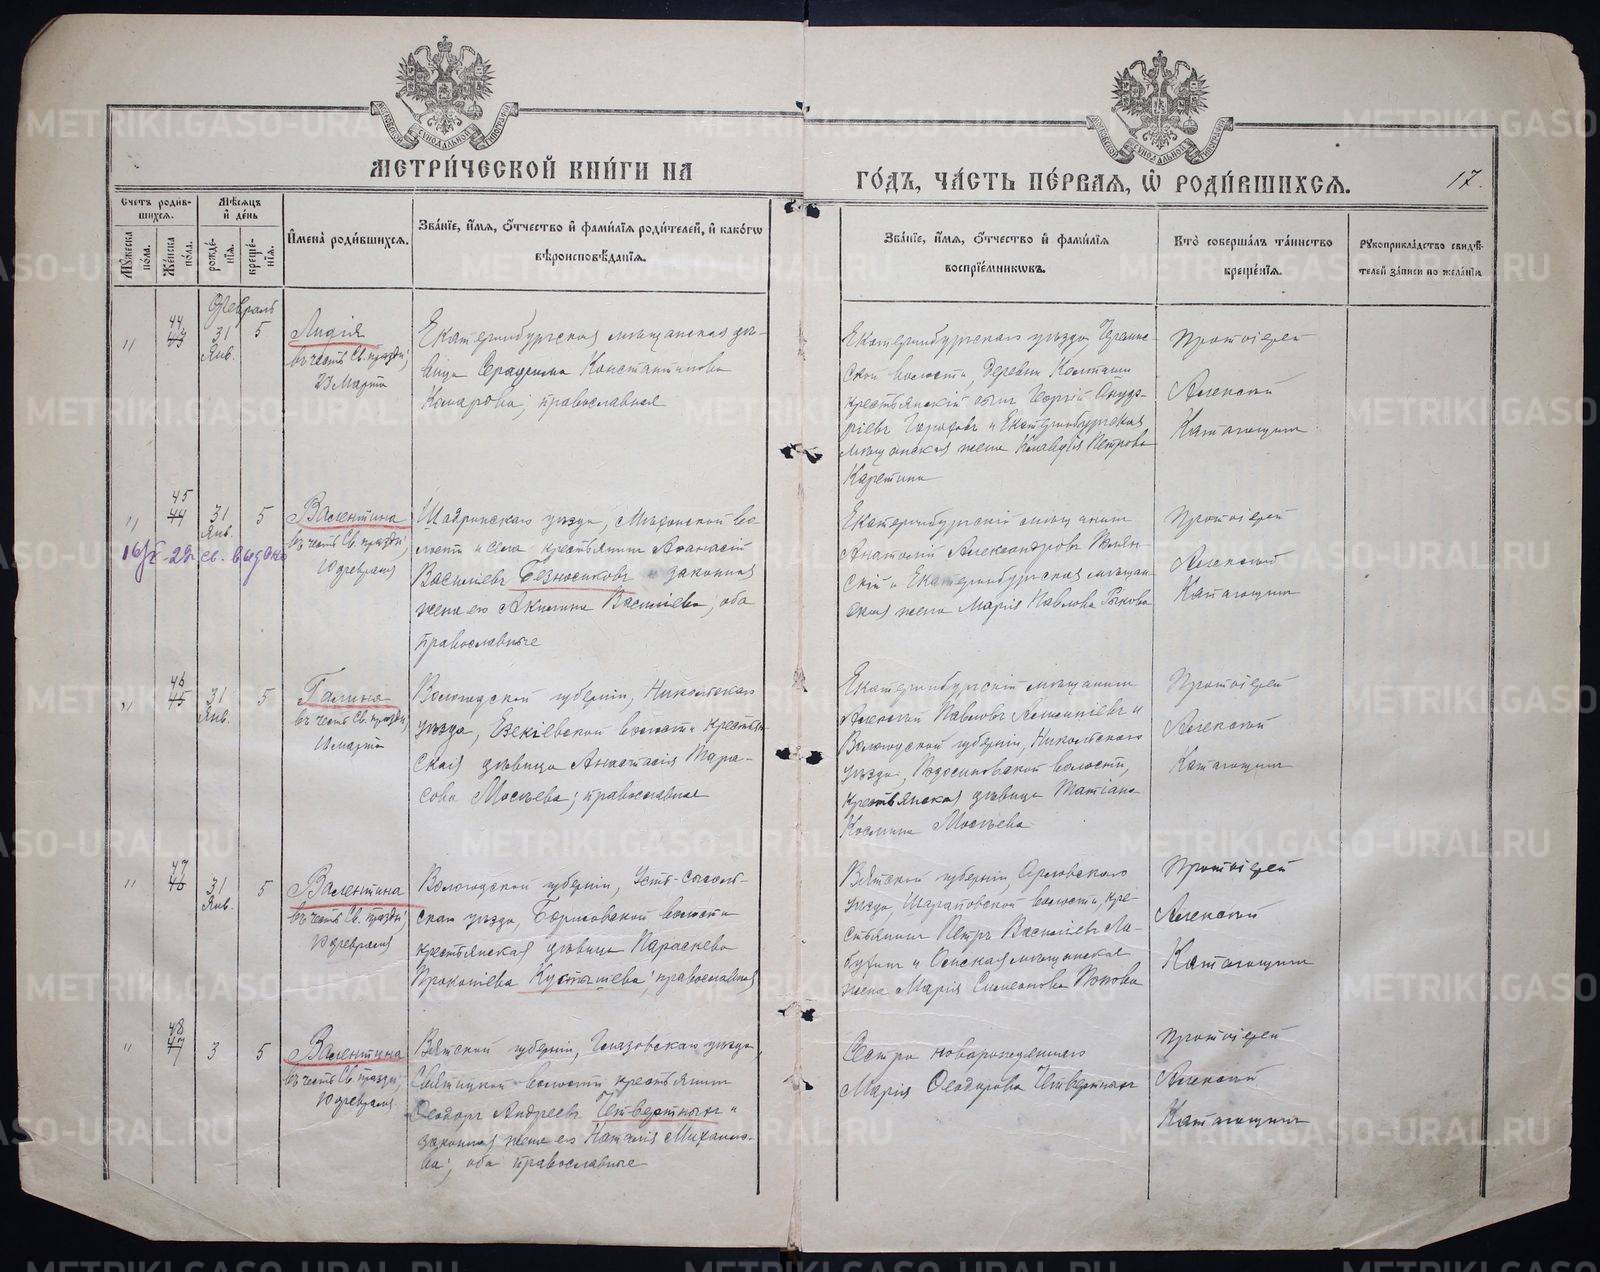 МЕТРИ́ЧЕСКОЙ КНИ́ГИ НА
ГО́ДЪ, ЧА́СТЬ ПЕ́РВАЯ, Ѡ҆ РОДИ́ВШИХСЯ.
17.
Счетъ роди́в-
шихся.
Мѣ́сяцъ
и҆ де́нь
Му́жеска
по́ла.
Же́нска
по́ла.
рожде́-
нїя.
креще́-
нїя.
И҆мена̀ роди́вшихся.
Зва́нїе, и҆́мя, ѻ҆́тчество и҆ фами́лїя роди́телей, и҆ како́гѡ
вѣроисповѣ́данїя.
Зва́нїе, и҆́мя, ѻ҆́тчество и҆ фами́лїя
воспрїе́мникѡвъ.
Кто̀ соверша́лъ та́инство
креще́нїя.
Рукоприкла́дство свидѣ́-
телей за́писи по жела́нїю
Февраль
"
44
43
31
Янв.
5
Лидія
въ честь Св. праздн.
23 Марта
Екатеринбургская мѣщанская дѣ-
вица Серафима Константинова
Комарова; православная
Екатеринбургскаго уѣзда,
ской волости, деревни
крестьянскій сынъ Георгій
и Екатеринбургская
мѣщанская жена Клавдія Петрова
Протоіерей
Алексій
"
45
44
31
Янв.
5
Валентина
въ честь Св. праздн.
10 февраля
Шадринскаго уѣзда,
волости и села крестьянинъ Аѳанасій
Василіевъ Безносиковъ и законная
жена его Акилина Василіева; оба
православные
Екатеринбургскій мѣщанинъ
Анатолій Александровъ
скій и Екатеринбургская мѣщан-
ская жена Марія Павлова Рыкова
Протоіерей
Алексій
"
46
45
31
Янв.
5
Галина
въ честь Св. праздн.
10 марта
Вологодской губерніи, Никольскаго
уѣзда, волости крестьян-
ская дѣвица Анастасія Тара-
сова Мосѣева; православная
Екатеринбургскій мѣщанинъ
Алексій Павловъ и
Вологодской губерніи, Никольскаго
уѣзда, Подосиновской волости,
крестьянская дѣвица Татіана
Космина Мосѣева
Протоіерей
Алексій
"
47
46
31
Янв.
5
Валентина
въ честь Св. праздн.
10 февраля
Вологодской губерніи, Усть-Сысоль-
скаго уѣзда, волости
крестьянская дѣвица Параскева
Прокопіева Кустышева; православная
Вятской губерніи, Орловскаго
уѣзда, волости, кре-
стьянинъ Петръ Василіевъ
и мѣщанская
жена Марія Симеонова Попова
Протоіерей
Алексій
"
48
47
3
5
Валентина
въ честь Св. праздн.
10 февраля
Вятской губерніи, Глазовскаго уѣзда,
волости крестьянинъ
Ѳеодоръ Андреевъ Четвертныхъ и
законная жена его Наталія Михаило-
ва; оба православные
Сестра новорожденнаго
Марія Ѳеодорова Четвертныхъ
Протоіерей
Алексій
METRIKI.GASO-URAL.RU